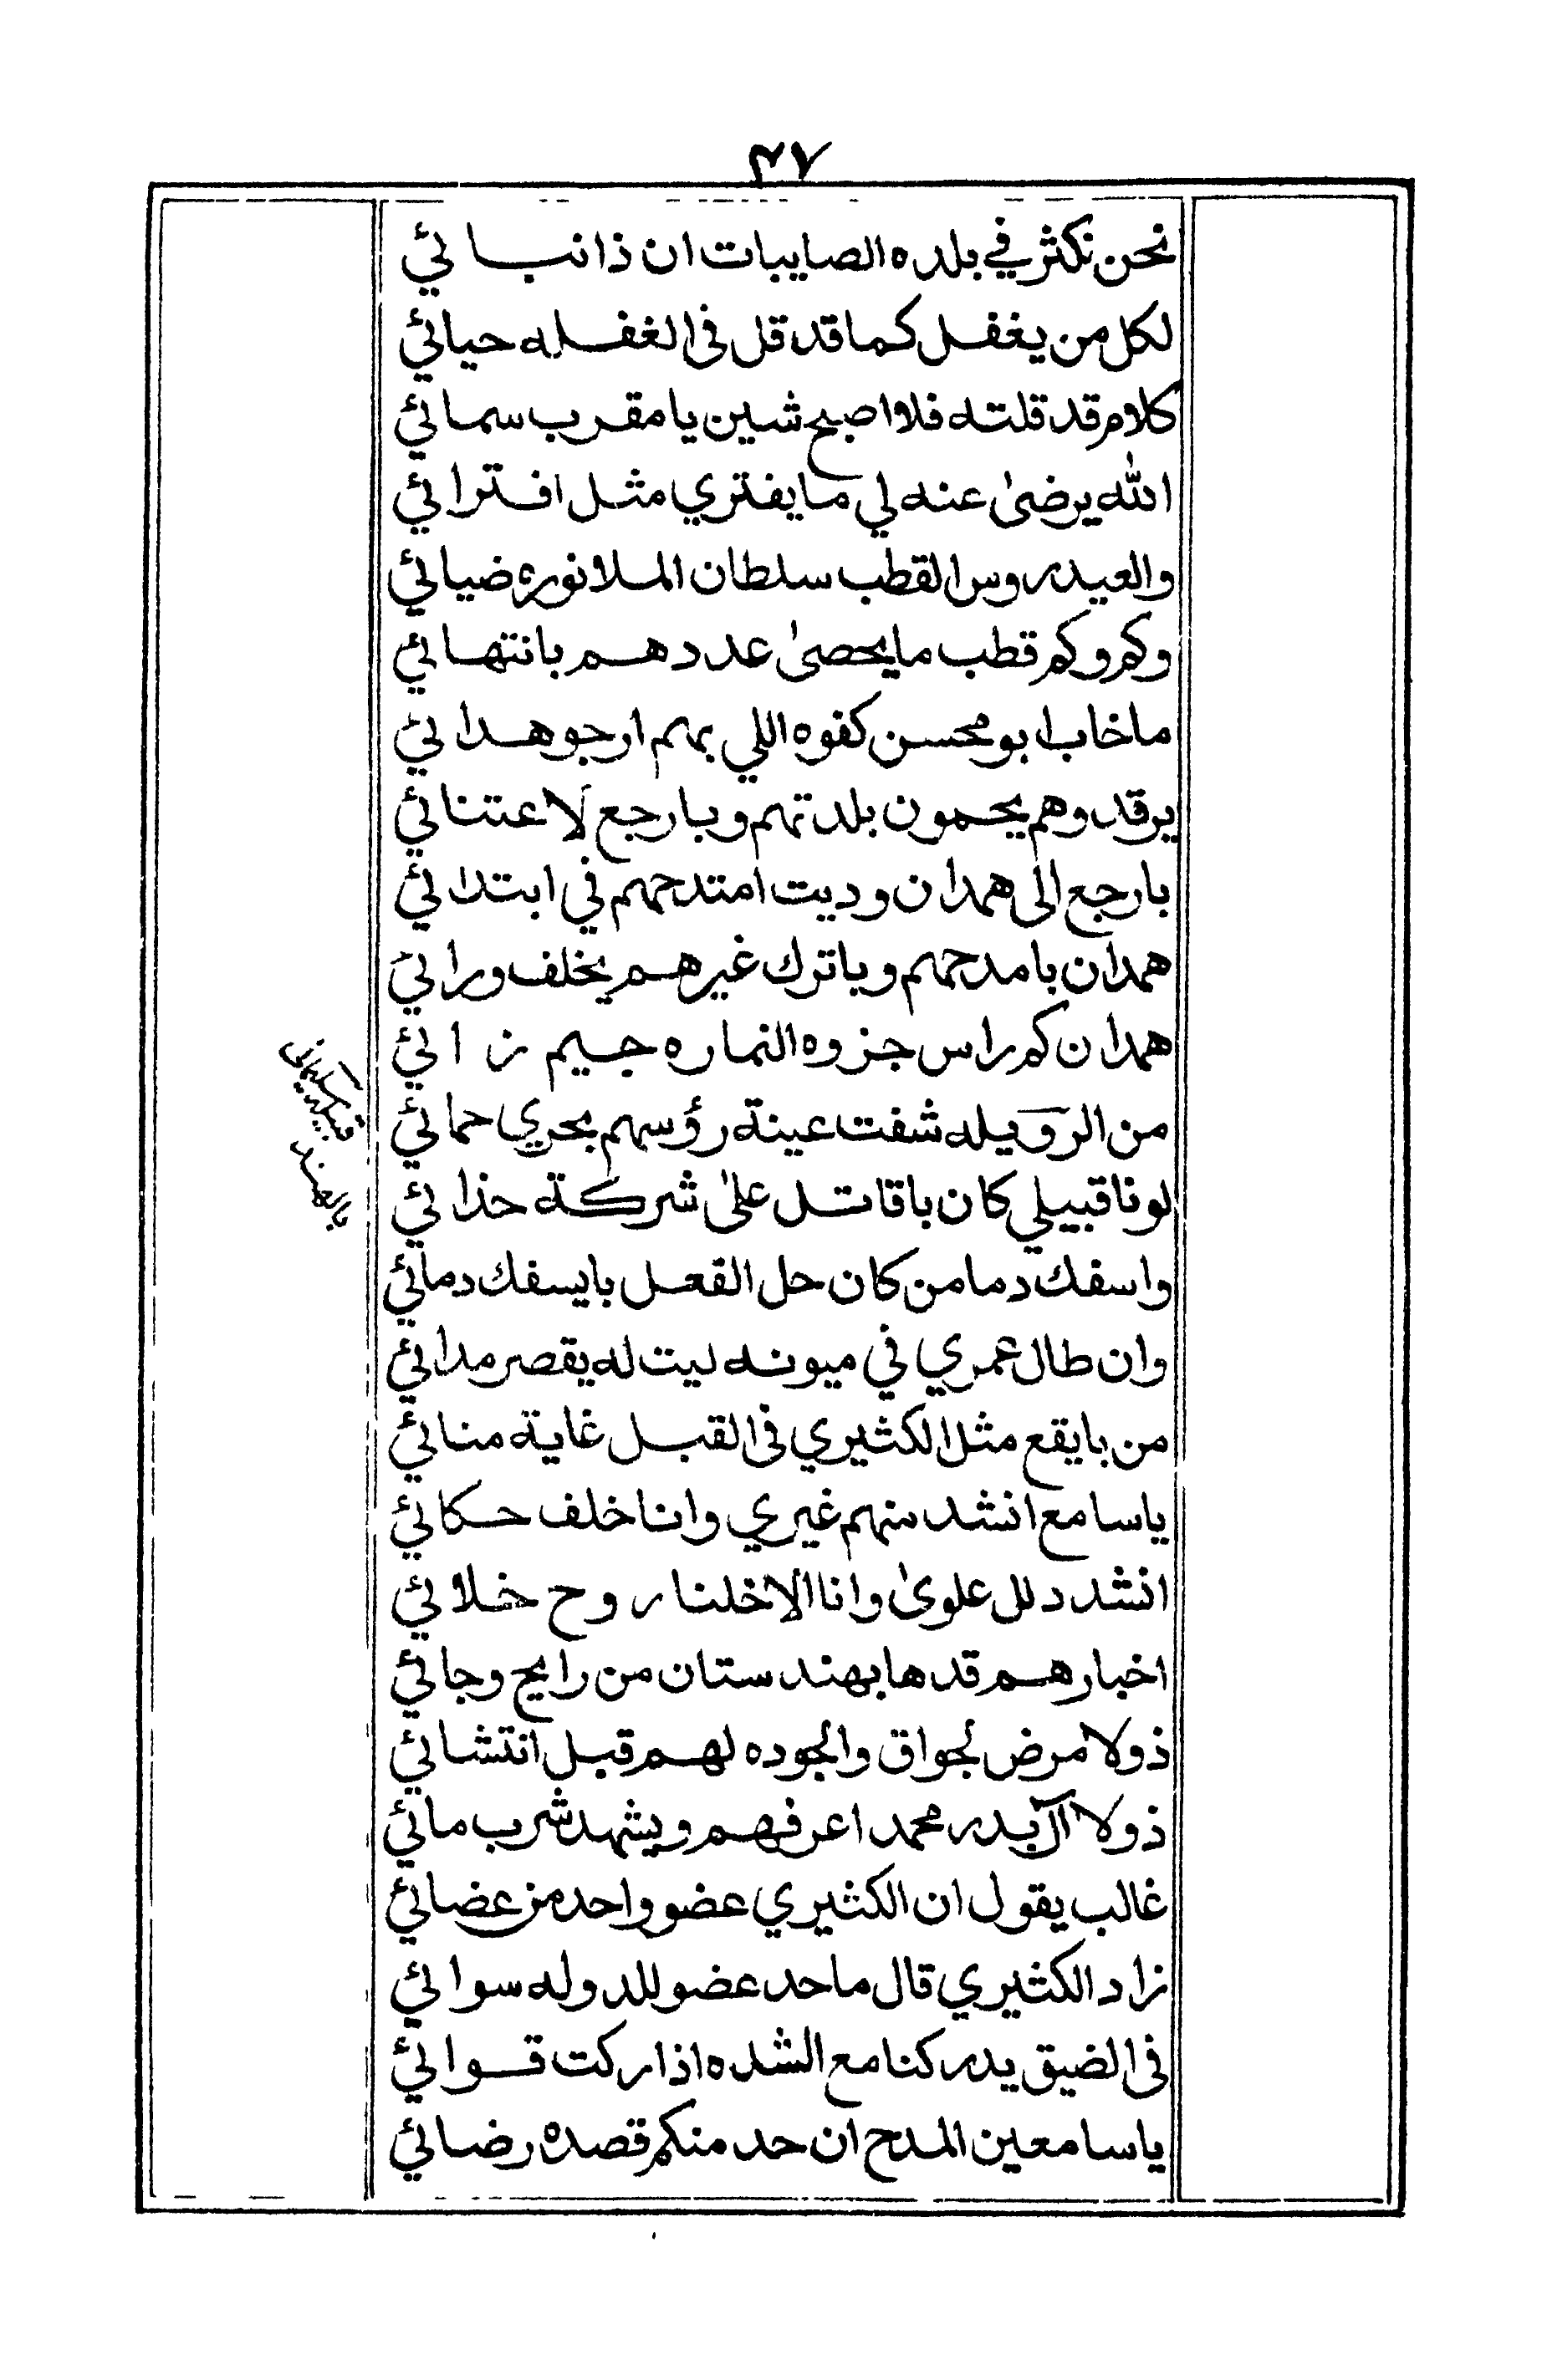 ٤٧
نحن نكثر في بلده الصايبات ان ذا نبائي
لكل من يغفل كما قد قل في الغفله حيائي
كلام قد قلته فلا اصبح شين يا مقرب سمائي
الله يرضى عنه لي ما يفتري مثل افترائي
والعيدروس القطب سلطان الملا نوره ضيائي
وكم وكم قطب ما يحصى عددهم بانتهائي
ما خاب ابو محسن كفوه اللي بهم ارجو هدائي
يرقد وهم يحمون بلدتهم وبا رجع لاعتنائي
بارجع الى همدان وديت امتدحهم في ابتدائي
همدان بامدحهم وباترك غيرهم يخلف ورائي
همدان كم راس جزوه النماره جيم زائي
من الرويله شفت عينة رؤسهم بحري حمائي
لونا قبيلي كان باقاتل على شركة حذائي
واسفك دما من كان حل القعل بايسفك دمائي
وان طال عمري في ميونه ليت له يقصر مدائي
من بايقع مثل الكثيري في القبل غاية منائي
يا سامع انشد منهم غيري وانا خلف حكائي
انشد دلل علوى وانا الاخلنا روح خلائي
اخبارهم قدها بهندستان من رايح وجائي
ذولا مرض لجواق والجوده لهم قبل انتشائي
ذولا آل بدر محمد اعرفهم ويشهد شرب مائي
غالب يقول ان الكثيري عضو واحد من عضائي
زاد الكثيري قال ماحد عضو للدوله سوائي
في الضيق يدركنا مع الشده اذا ركت قوائي
يا سامعين المدح ان حد منكم قصده رضائي
بالهند